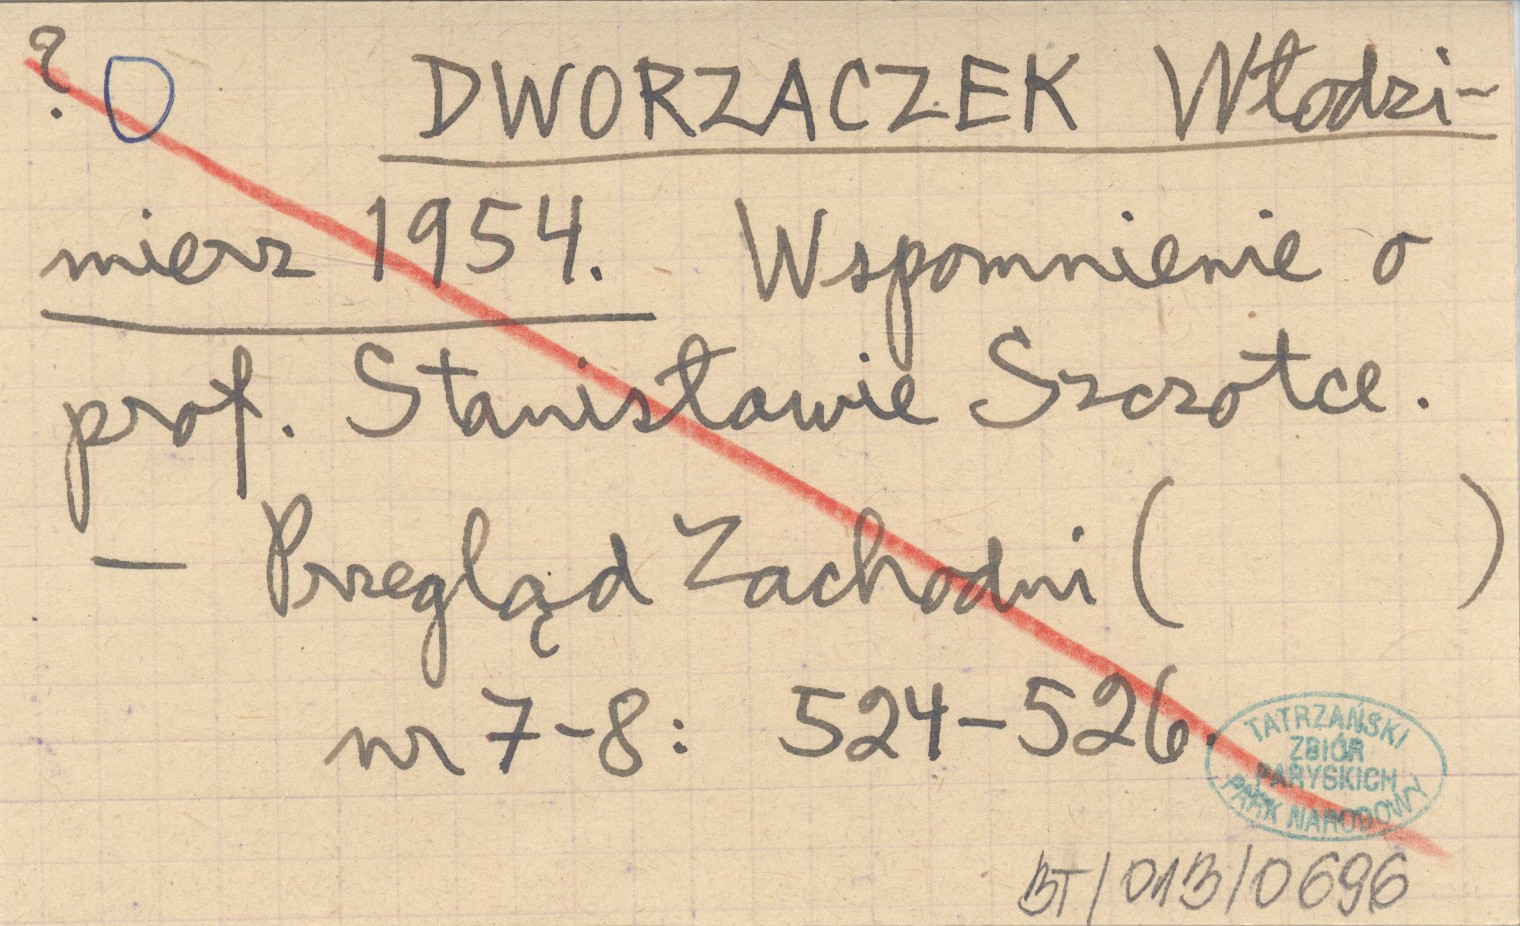 ? O DWORZACZEK Włodzi-
mierz 1954. Wspomnienie o
prof. Stanisławie Szczotce.
— Przegląd Zachodni ( )
nr 7-8: 524-526.
TATRZAŃSKI
ZBIÓR
PARYSKICH
PARK NARODOWY
BT/013/0696